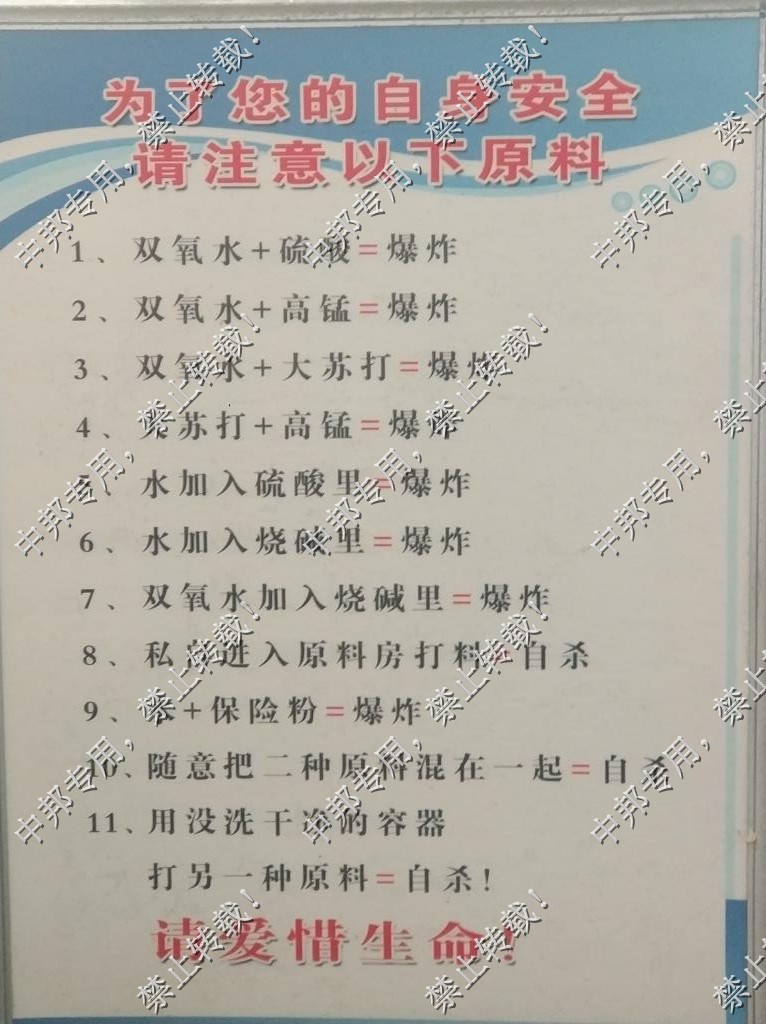 为了您的自身安全
请注意以下原料
1、双氧水+硫酸=爆炸
2、双氧水+高锰=爆炸
3、双氧水+大苏打=爆炸
4、大苏打+高锰=爆炸
5、水加入硫酸里=爆炸
6、水加入烧碱里=爆炸
7、双氧水加入烧碱里=爆炸
8、私自进入原料房打料=自杀
9、水+保险粉=爆炸
10、随意把二种原料混在一起=自杀
11、用没洗干净的容器
打另一种原料=自杀!
请爱惜生命!
申邦专用，禁止转载!
申邦专用，禁止转载!
申邦专用，禁止转载!
申邦专用，禁止转载!
申邦专用，禁止转载!
申邦专用，禁止转载!
申邦专用，禁止转载!
申邦专用，禁止转载!
申邦专用，禁止转载!
禁止转载!
禁止转载!
禁止转载!